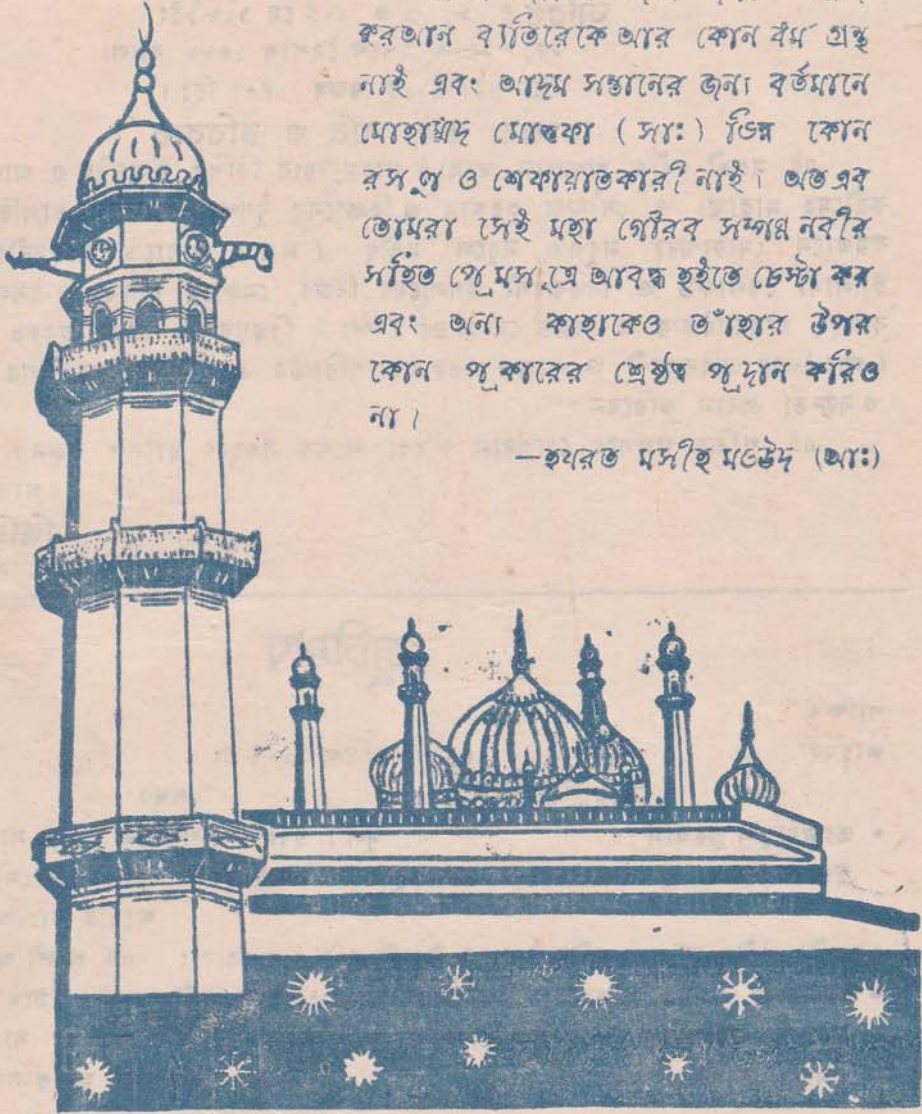 কুরআন ব্যতিরেকে আর কোন ধর্ম গ্রন্থ
নাই এবং আদম সন্তানের জন্য বর্তমানে
মোহাম্মদ মোস্তফা ( সাঃ ) ভিন্ন কোন
রসূল ও শেফায়াতকারী নাই। অতএব
তোমরা সেই মহা গৌরব সম্পন্ন নবীর
সহিত প্রেমসূত্রে আবদ্ধ হইতে চেস্টা কর
এবং অন্য কাহাকেও তাঁহার উপর
কোন প্রকারের শ্রেষ্ঠত্ব প্রদান করিও
না।
—হযরত মসীহ মওউদ (আঃ)